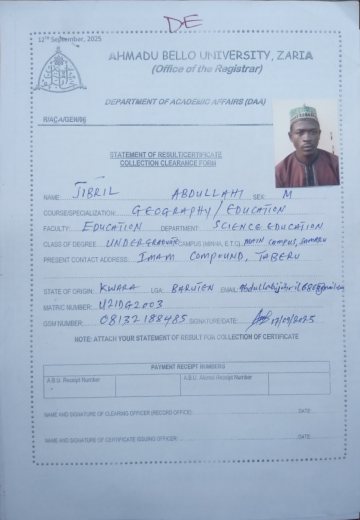 DE
12th September, 2025
AHMADU BELLO UNIVERSITY, ZARIA
(Office of the Registrar)
DEPARTMENT OF ACADEMIC AFFAIRS (DAA)
R/ACA/GEN/96
STATEMENT OF RESULT/CERTIFICATE
COLLECTION CLEARANCE FORM
NAME: JIBRIL ABDULLAHI SEX: M
COURSE/SPECIALIZATION: GEOGRAPHY/EDUCATION
FACULTY: EDUCATION DEPARTMENT: SCIENCE EDUCATION
CLASS OF DEGREE: UNDERGRADUATE CAMPUS (MAIN, E.T.C) MAIN CAMPUS, SAMARU
PRESENT CONTACT ADDRESS: IMAM COMPOUND, TABERU
STATE OF ORIGIN: KWARA LGA: BARUTEN EMAIL:
MATRIC NUMBER: U21DG2003
GSM NUMBER: 08132188485 SIGNATURE/DATE:
NOTE: ATTACH YOUR STATEMENT OF RESULT FOR COLLECTION OF CERTIFICATE
PAYMENT RECEIPT NUMBERS
A.B.U Receipt Number A.B.U. Alumni Receipt Number
NAME AND SIGNATURE OF CLEARING OFFICER (RECORD OFFICE): DATE:
NAME AND SIGNATURE OF CERTIFICATE ISSUING OFFICER: DATE: